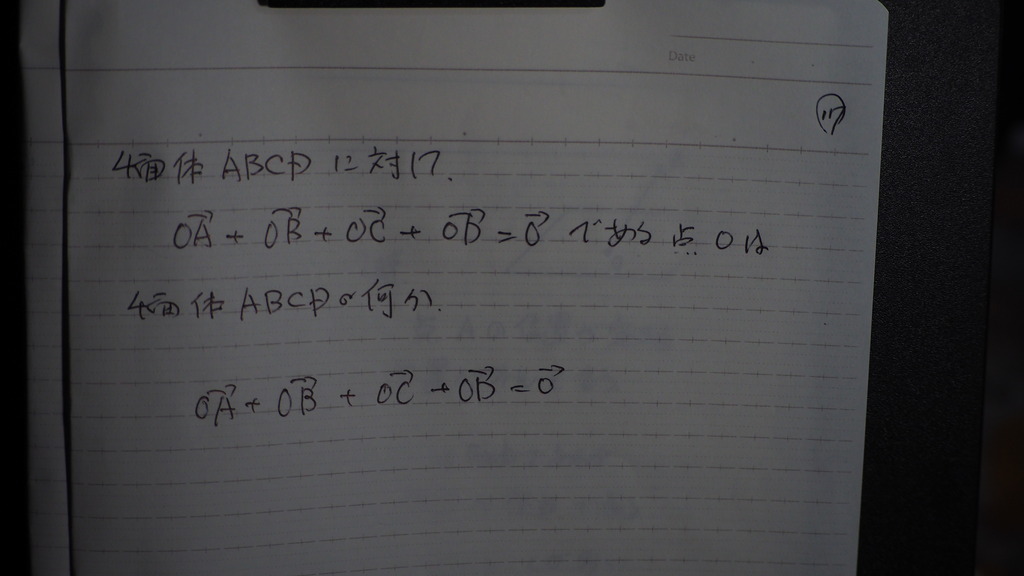 Date
(17)
4面体 ABCD に対して.
→OA + →OB + →OC + →OD = →0 である 点 O は
4面体 ABCD の何か.
→OA + →OB + →OC + →OD = →0